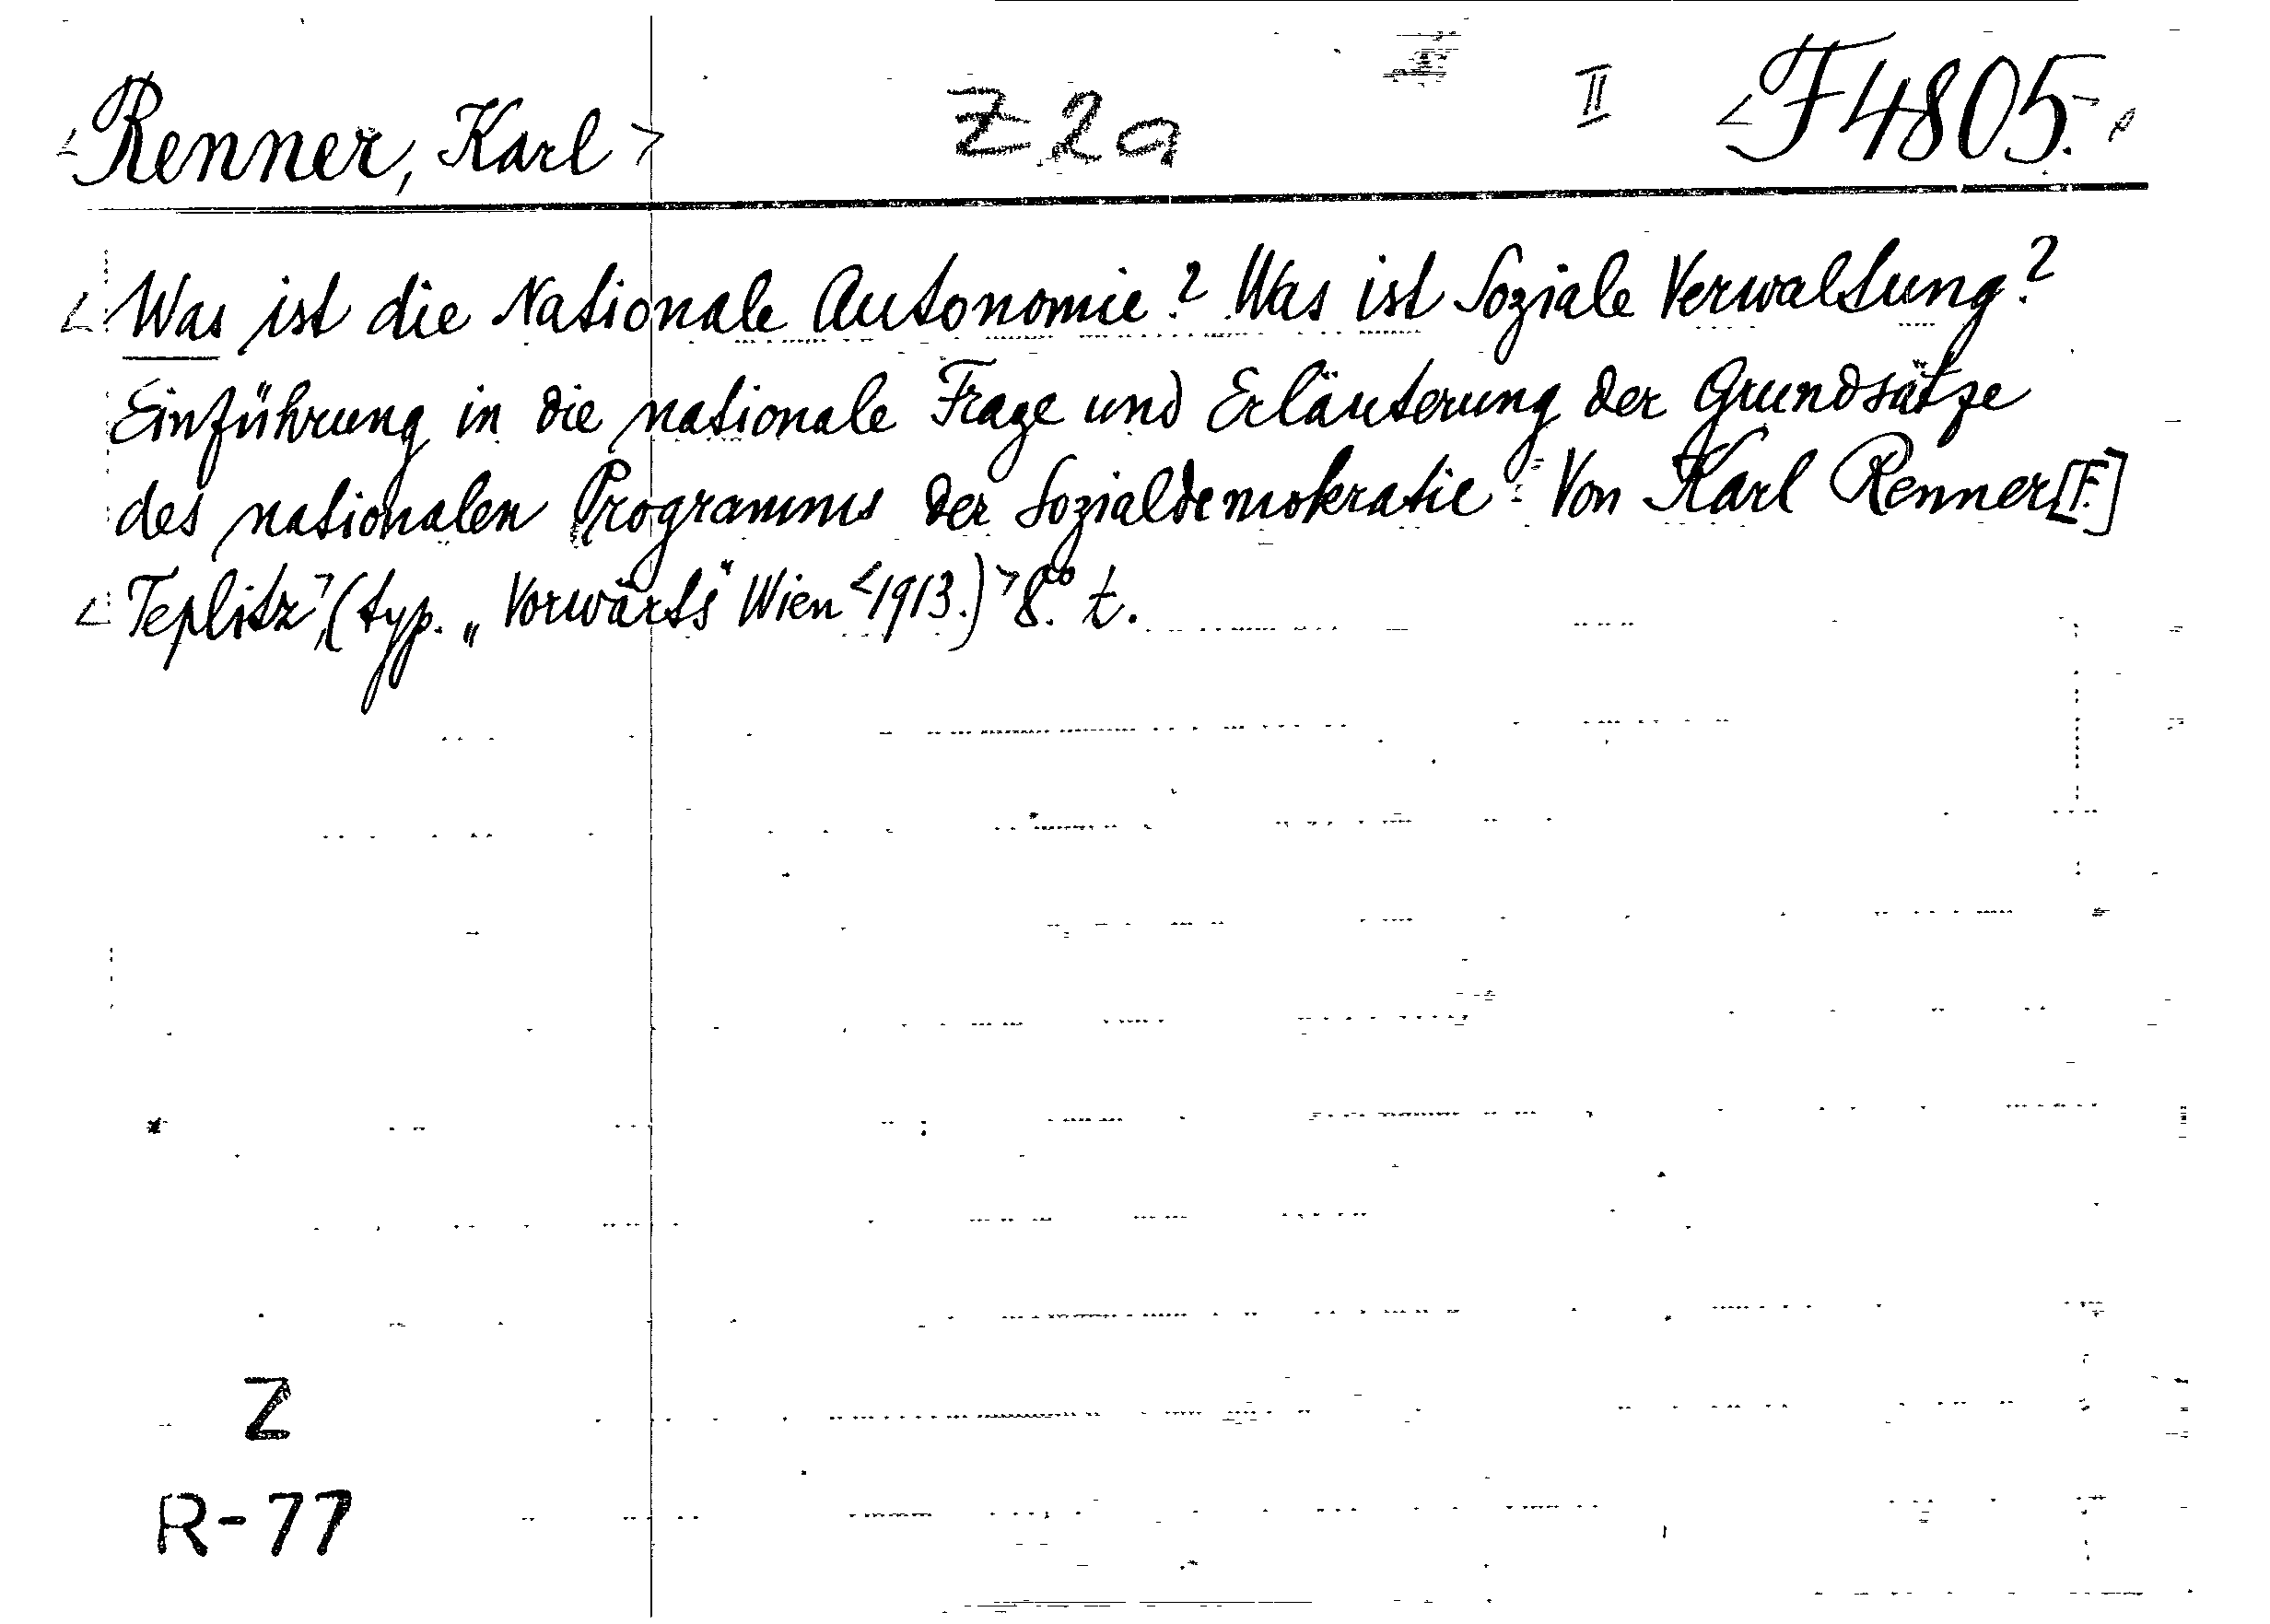 <Renner, Karl> Z2a II <F4805.>
<Was ist die Nationale Autonomie? Was ist Soziale Verwaltung?
Einführung in die nationale Frage und Erläuterung der Grundsätze
des nationalen Programms der Sozialdemokratie. Von Karl Renner[F.]
<Teplitz>, (typ. „Vorwärts" Wien <1913.)> 8.° t.
Z
R-77